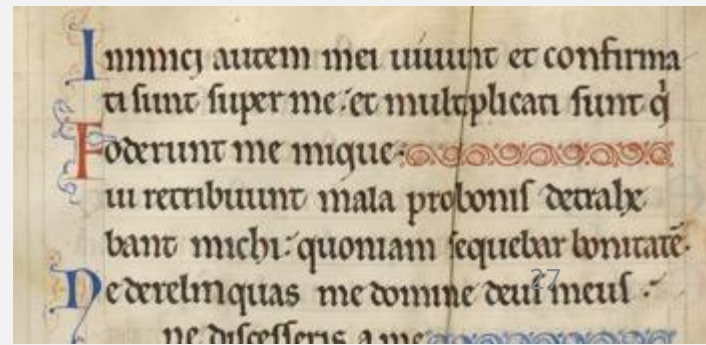 Inimici autem mei uiuunt et confirma
ti sunt super me: et multiplicati sunt q̇
oderunt me inique:
Fui retribuunt mala pro bonis detrahe
bant michi: quoniam sequebar bonitatē.
Ne derelinquas me domine deus meus :
27
ne discesseris a me